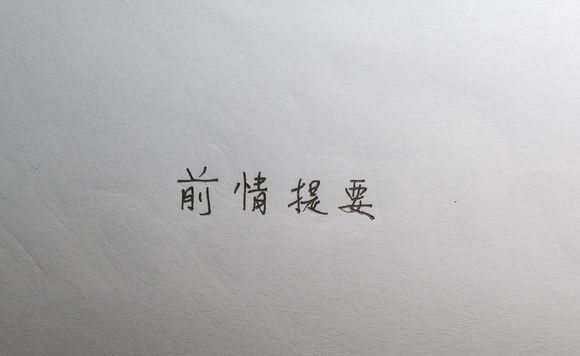 前情提要